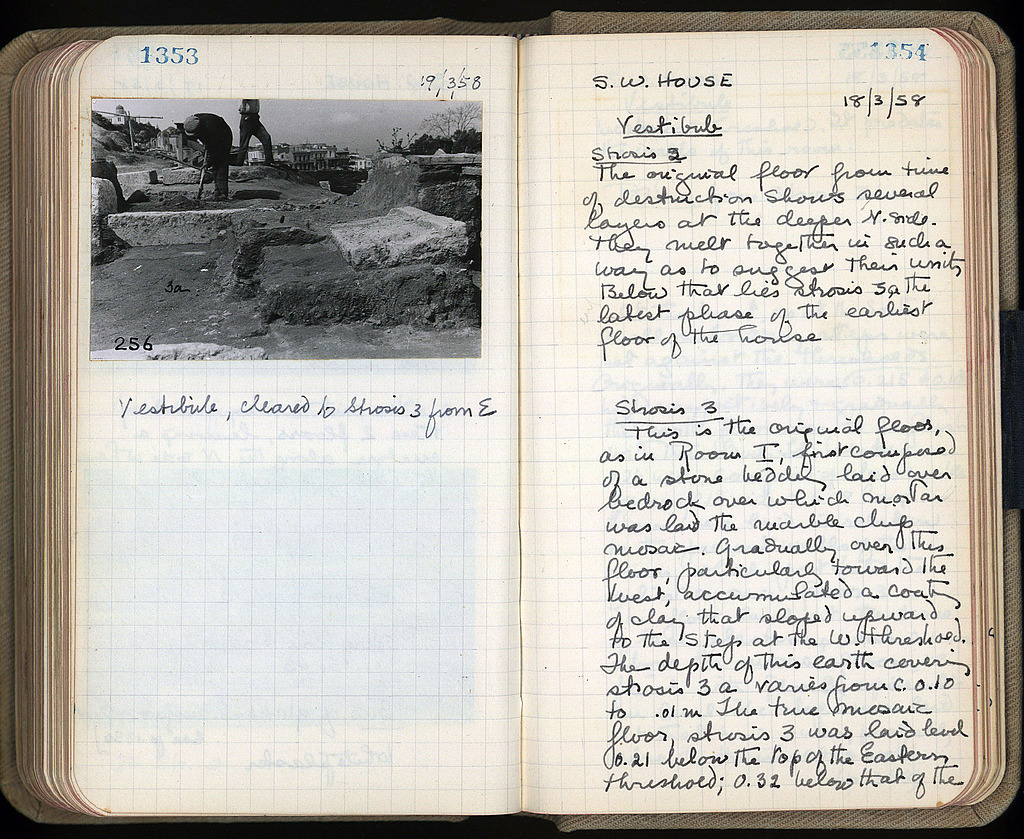 1353
19/3/58
3a
256
Vestibule, cleared to Strosis 3 from E
1354
S.W. HOUSE
18/3/58
Vestibule
Strosis 2
The original floor from time
of destruction shows several
layers at the deeper N. side.
They melt together in such a
way as to suggest their unity
Below that lies strosis 3a the
latest phase of the earliest
floor of the house
Strosis 3
This is the original floor,
as in Room I, first composed
of a stone bedding laid over
bedrock over which mortar
was laid the marble chip
mosaic. Gradually over this
floor, particularly toward the
West, accumulated a coating
of clay that sloped upward
to the step at the W. threshold.
The depth of this earth covering
strosis 3a varies from c. 0.10
to .01m The true mosaic
floor, strosis 3 was laid level
0.21 below the top of the Eastern
threshold; 0.32 below that of the